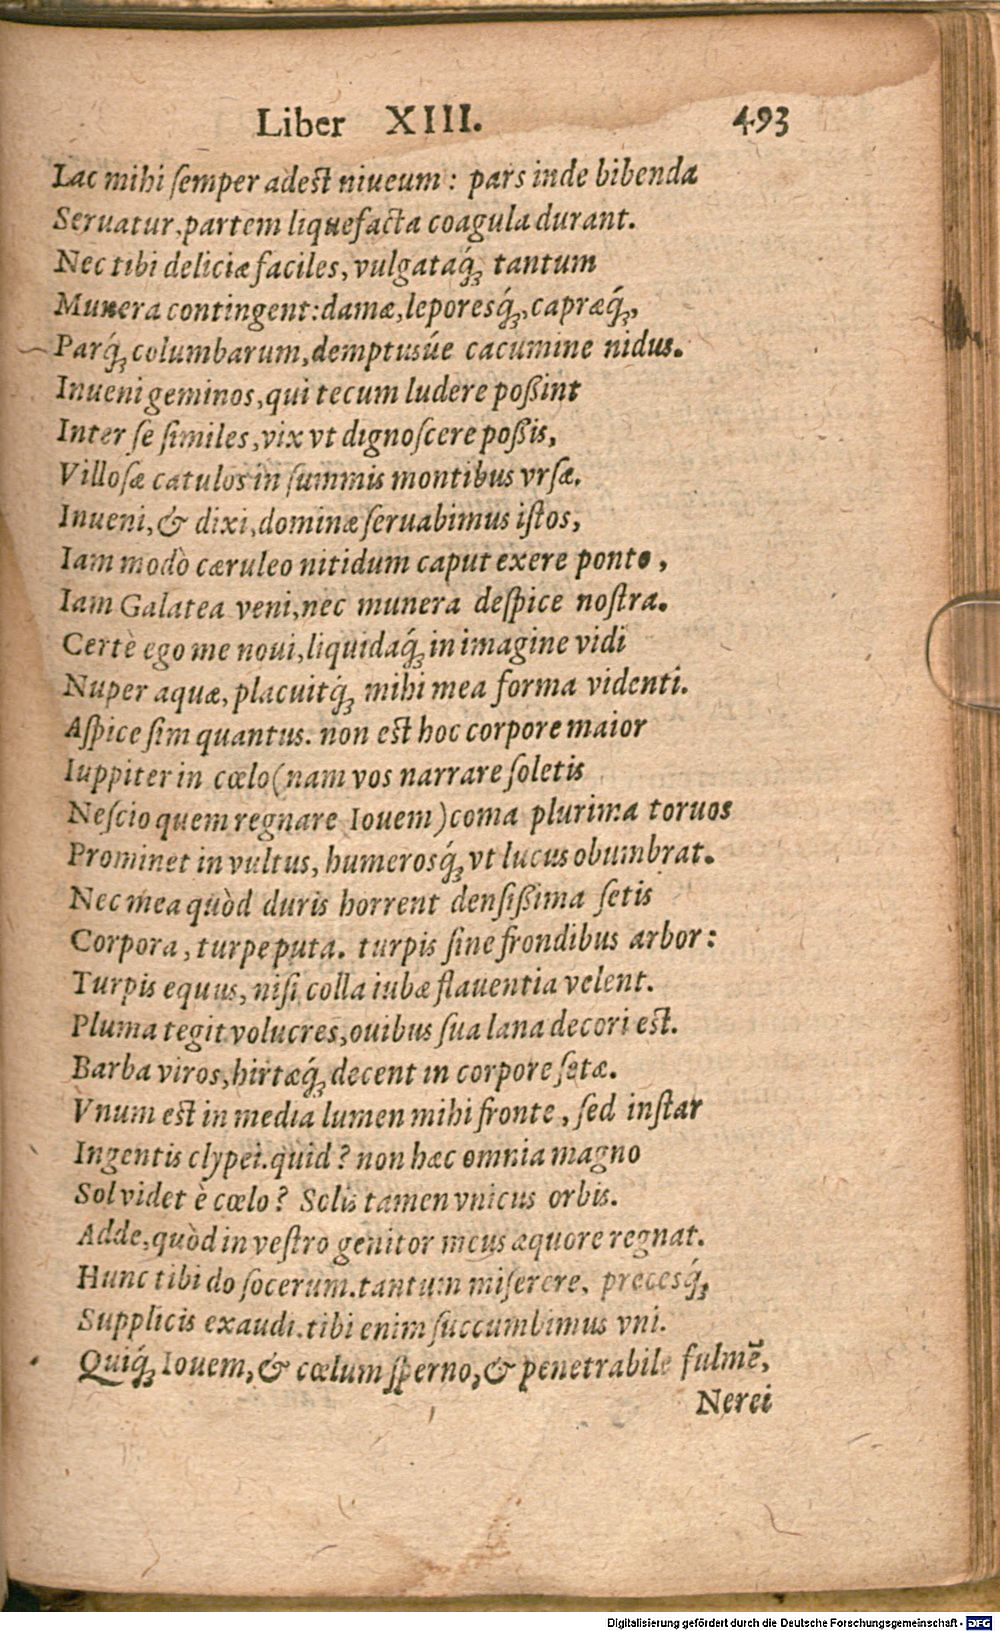 Liber XIII. 493
Lac mihi ſemper adest niueum: pars inde bibenda
Seruatur, partem liquefacta coagula durant.
Nec tibi deliciæ faciles, vulgataq́ꝫ tantum
Munera contingent: damæ, leporesq́ꝫ, capræq́ꝫ,
Parq́ꝫ columbarum, demptusúe cacumine nidus.
Inueni geminos, qui tecum ludere poßint
Inter ſe ſimiles, vix vt dignoſcere poßis,
Villoſæ catulos in ſummis montibus vrſæ.
Inueni, & dixi, dominæ ſeruabimus iſtos,
Iam modò cæruleo nitidum caput exere ponto,
Iam Galatea veni, nec munera deſpice noſtra.
Certè ego me noui, liquidaq́ꝫ in imagine vidi
Nuper aquæ, placuitq́ꝫ mihi mea forma videnti.
Aſpice ſim quantus. non est hoc corpore maior
Iuppiter in cœlo (nam vos narrare ſoletis
Neſcio quem regnare Iouem) coma plurima toruos
Prominet in vultus, humerosq́ꝫ vt lucus obumbrat.
Nec mea quòd duris horrent denſißima ſetis
Corpora, turpe puta. turpis ſine frondibus arbor:
Turpis equus, niſi colla iubæ flauentia velent.
Pluma tegit volucres, ouibus ſua lana decori est.
Barba viros, hirtæq́ꝫ decent in corpore ſetæ.
Vnum est in media lumen mihi fronte, ſed inſtar
Ingentis clypei. quid? non hæc omnia magno
Sol videt è cœlo? Solis tamen vnicus orbis.
Adde, quòd in veſtro genitor meus æquore regnat.
Hunc tibi do ſocerum. tantum miſerere, precesq́ꝫ
Supplicis exaudi. tibi enim ſuccumbimus vni.
Quiq́ꝫ Iouem, & cœlum ſperno, & penetrabile fulmē,
Nerei
Digitalisierung gefördert durch die Deutsche Forschungsgemeinschaft - DFG